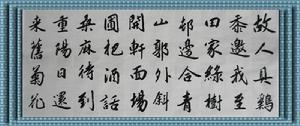 故人具鷄
黍邀我至
田家綠樹
邨邊合青
山郭外斜
開軒面場
圃把酒話
桑麻待到
重陽日還
来舊菊花